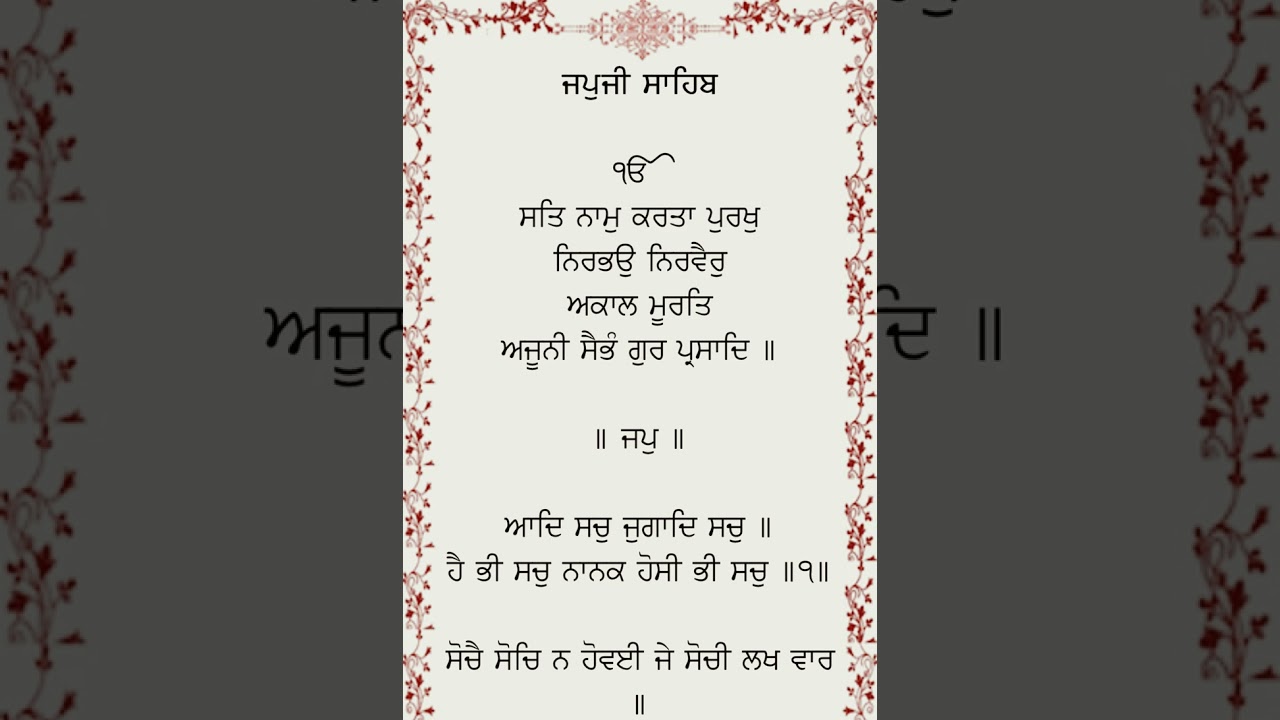 ਜਪੁਜੀ ਸਾਹਿਬ
ੴ
ਸਤਿ ਨਾਮੁ ਕਰਤਾ ਪੁਰਖੁ
ਨਿਰਭਉ ਨਿਰਵੈਰੁ
ਅਕਾਲ ਮੂਰਤਿ
ਅਜੂਨੀ ਸੈਭੰ ਗੁਰ ਪ੍ਰਸਾਦਿ ॥
॥ ਜਪੁ ॥
ਆਦਿ ਸਚੁ ਜੁਗਾਦਿ ਸਚੁ ॥
ਹੈ ਭੀ ਸਚੁ ਨਾਨਕ ਹੋਸੀ ਭੀ ਸਚੁ ॥੧॥
ਸੋਚੈ ਸੋਚਿ ਨ ਹੋਵਈ ਜੇ ਸੋਚੀ ਲਖ ਵਾਰ
॥